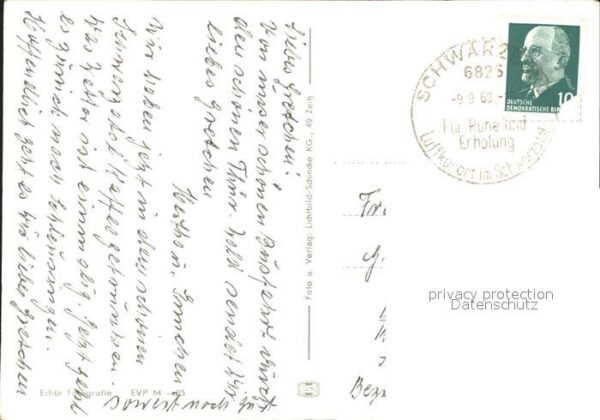 Liebes Gretchen!
Von unserer schönen Busfahrt durch
den schönen Thür. Wald sendet Dir
liebes Gretchen
Herta u.
Wir haben jetzt in dem schönen
Schwarzatal Kaffee getrunken.
Das Wetter ist einmalig. Jetzt geht
es zurück nach
Hoffentlich geht es Dir liebes Gretchen
soweit noch gut
Foto u. Verlag: Lichtbild-Schincke KG., 49 Zeitz
Echte Fotografie EVP M -,
SCHWARZ
6825
-9.9.63.-
Für Ruhe und
Erholung
Luftkurort im Schwarzatal
DEUTSCHE
DEMOKRATISCHE REP
10
Fr
G
Bez
privacy protection
Datenschutz